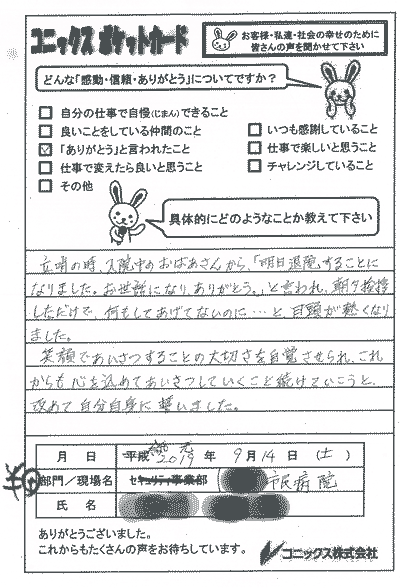 コニックス ポケットカード
お客様・私達・社会の幸せのために
皆さんの声を聞かせて下さい
どんな「感動・信頼・ありがとう」についてですか?
自分の仕事で自慢(じまん)できること
良いことをしている仲間のこと
いつも感謝していること
「ありがとう」と言われたこと
仕事で楽しいと思うこと
仕事で変えたら良いと思うこと
チャレンジしていること
その他
具体的にどのようなことか教えて下さい
立哨の時、入院中のおばあさんから、「明日退院することに
なりました。お世話になり、ありがとう。」と言われ、朝夕挨拶
しただけで、何もしてあげてないのに…と、目頭が熱くなり
ました。
笑顔であいさつすることの大切さを自覚させられ、これ
からも心を込めてあいさつしていくこと続けていこうと、
改めて自分自身に誓いました。
月 日 平成 元 2019 年 9月 14日 (土)
部門/現場名 セキュリティ事業部 市民病院
氏 名
ありがとうございました。
これからもたくさんの声をお待ちしています。
コニックス株式会社